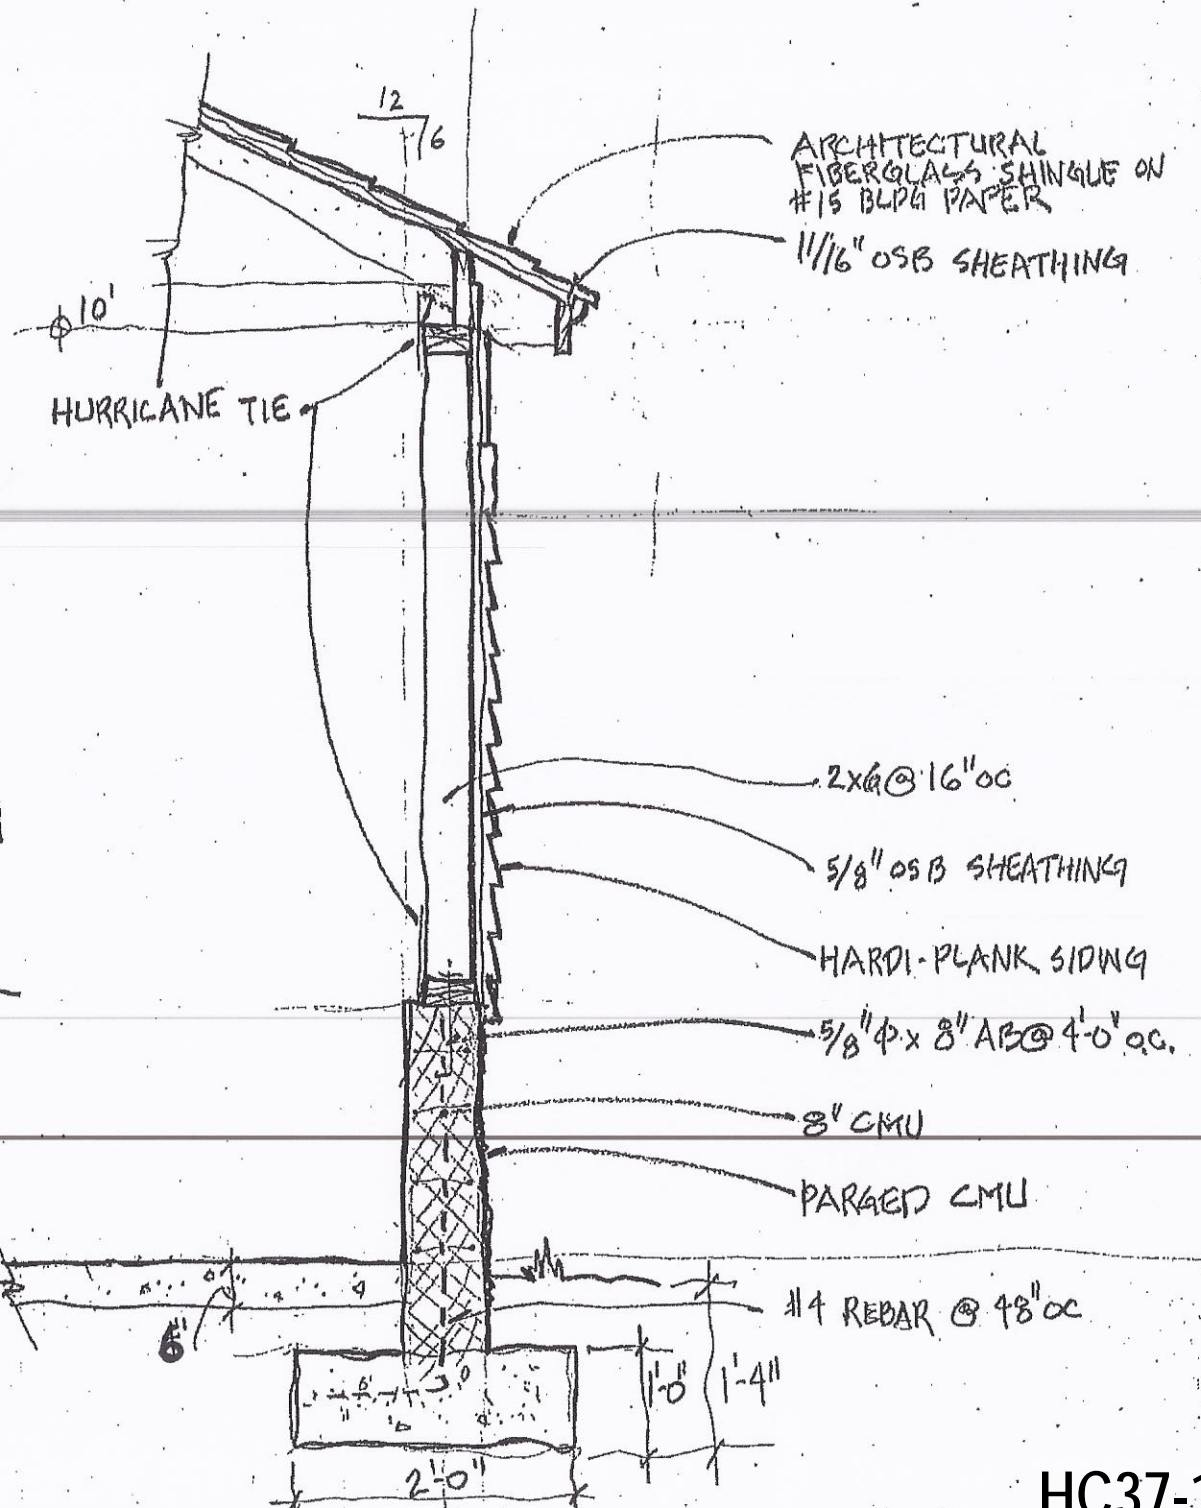 12
6
ARCHITECTURAL
FIBERGLASS SHINGLE ON
#15 BLDG PAPER
11/16" OSB SHEATHING
10'
HURRICANE TIE
2x6@16"OC
5/8" OSB SHEATHING
HARDI-PLANK SIDING
5/8"Φ x 8" AB@4'-0" O.C.
8" CMU
PARGED CMU
#4 REBAR @ 48"OC
6"
1'-0"
1'-4"
2'-0"